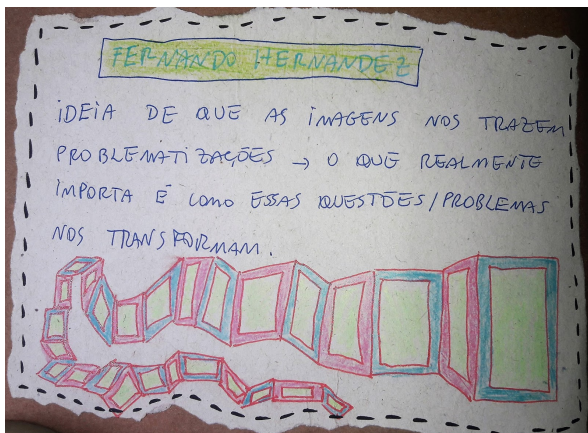 FERNANDO HERNANDEZ
IDEIA DE QUE AS IMAGENS NOS TRAZEM
PROBLEMATIZAÇÕES → O QUE REALMENTE
IMPORTA É COMO ESSAS QUESTÕES/PROBLEMAS
NOS TRANSFORMAM.